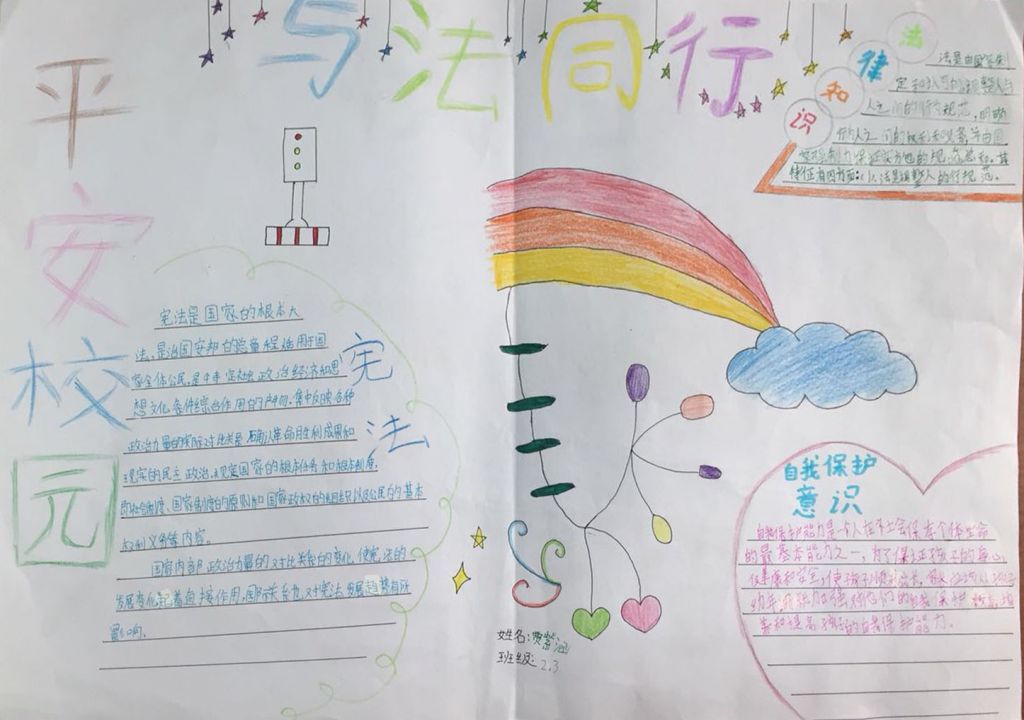 平安校园
与法同行
法律知识
法是由国家制
定和认可的调整人与
人之间的行为规范,明确
的人之间的权利和义务并由国
家强制力保证实施的规范总和。其
特征有四方面:(1)法是调整人的行规范。
宪法
宪法是国家的根本大
法,是治国安邦的总章程适用于国
家全体公民,是
政治经济和思
想文化条件综合作用的产物,集中反映各种
政治力量的实际对比关系,确认革命胜利成果和
现实的民主政治,规定国家的根本任务和根本制度,
即社会制度、国家制度的原则和国家政权的组织以及公民的基本
权利义务等内容。
国家内部政治力量的对比关系的变化,使宪法的
发展变化起着直接作用,国际关系也对宪法发展趋势有所
影响。
自我保护
意识
自我保护能力是一个人在社会保存个体生命
的最基本能力之一,为了保证孩子的身心
健康和安全,使孩子顺利成长,
幼年
加强对他们的自我保护教育,培
养和提高孩子的自我保护能力。
姓名:
班级:2.3